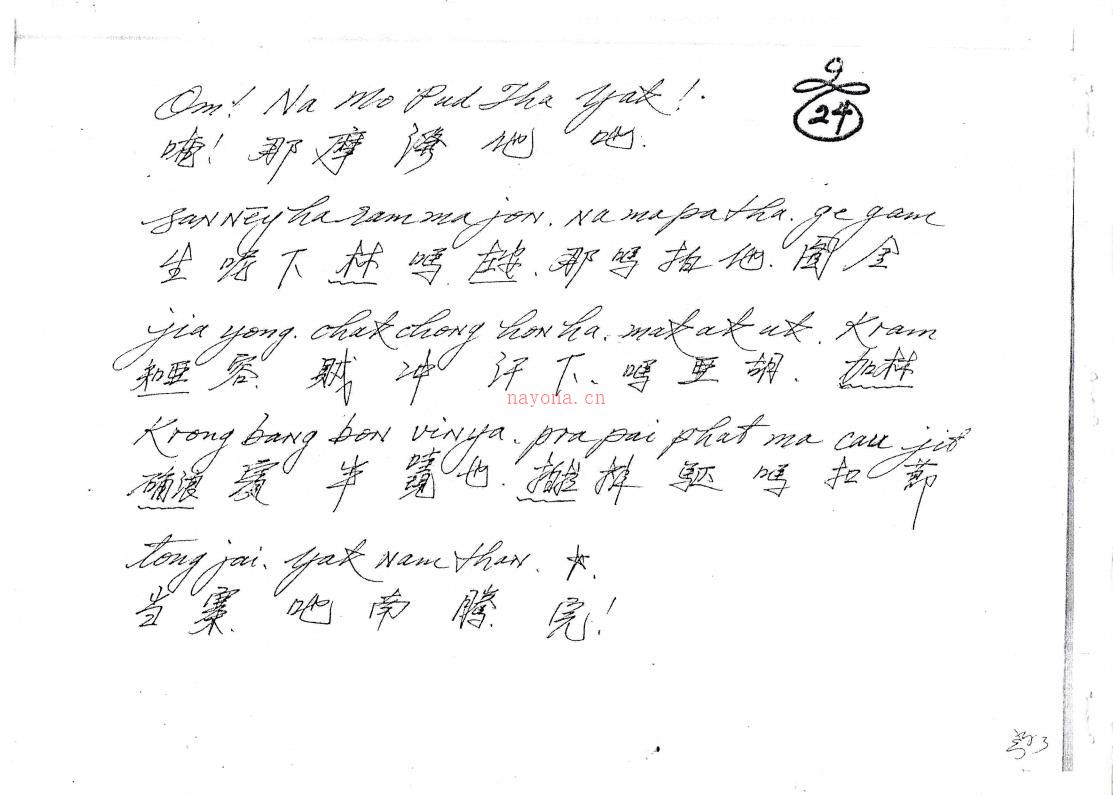 9
24
Om! Na Mo Pud Tha Yak!
唵! 那 摩 地 吔.
sanney ha ram ma jon. na ma pa tha. ge gam
生 呢 下 林 嗎 . 那 嗎 拍 他. 圖 金
jia yong. chak chong hon ha. mak ak uk. Kram
容. 賊 冲 汗 下. 嗎 亜 胡. 加林
nayona.cn
Krong bang bon vinya. pra pai phat ma cau jit
半 也. 排 嗎 扣 節
tong jai. yak nam than. ☆.
当 寨. 吔 南 騰. 完!
3